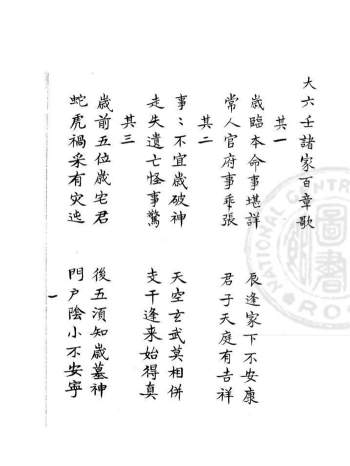 大六壬諸家百章歌
其一
歲臨本命事堪詳 辰逢家下不安康
常人官府事乖張 君子天庭有吉祥
其二
事〻不宜歲破神 天空玄武莫相併
走失遺亡怪事驚 支干逢来始得真
其三
歲前五位歲宅君 後五須知歲墓神
蛇虎禍采有灾迍 門戶陰小不安寧
一
圖書
NATIONAL CENTR
ROC